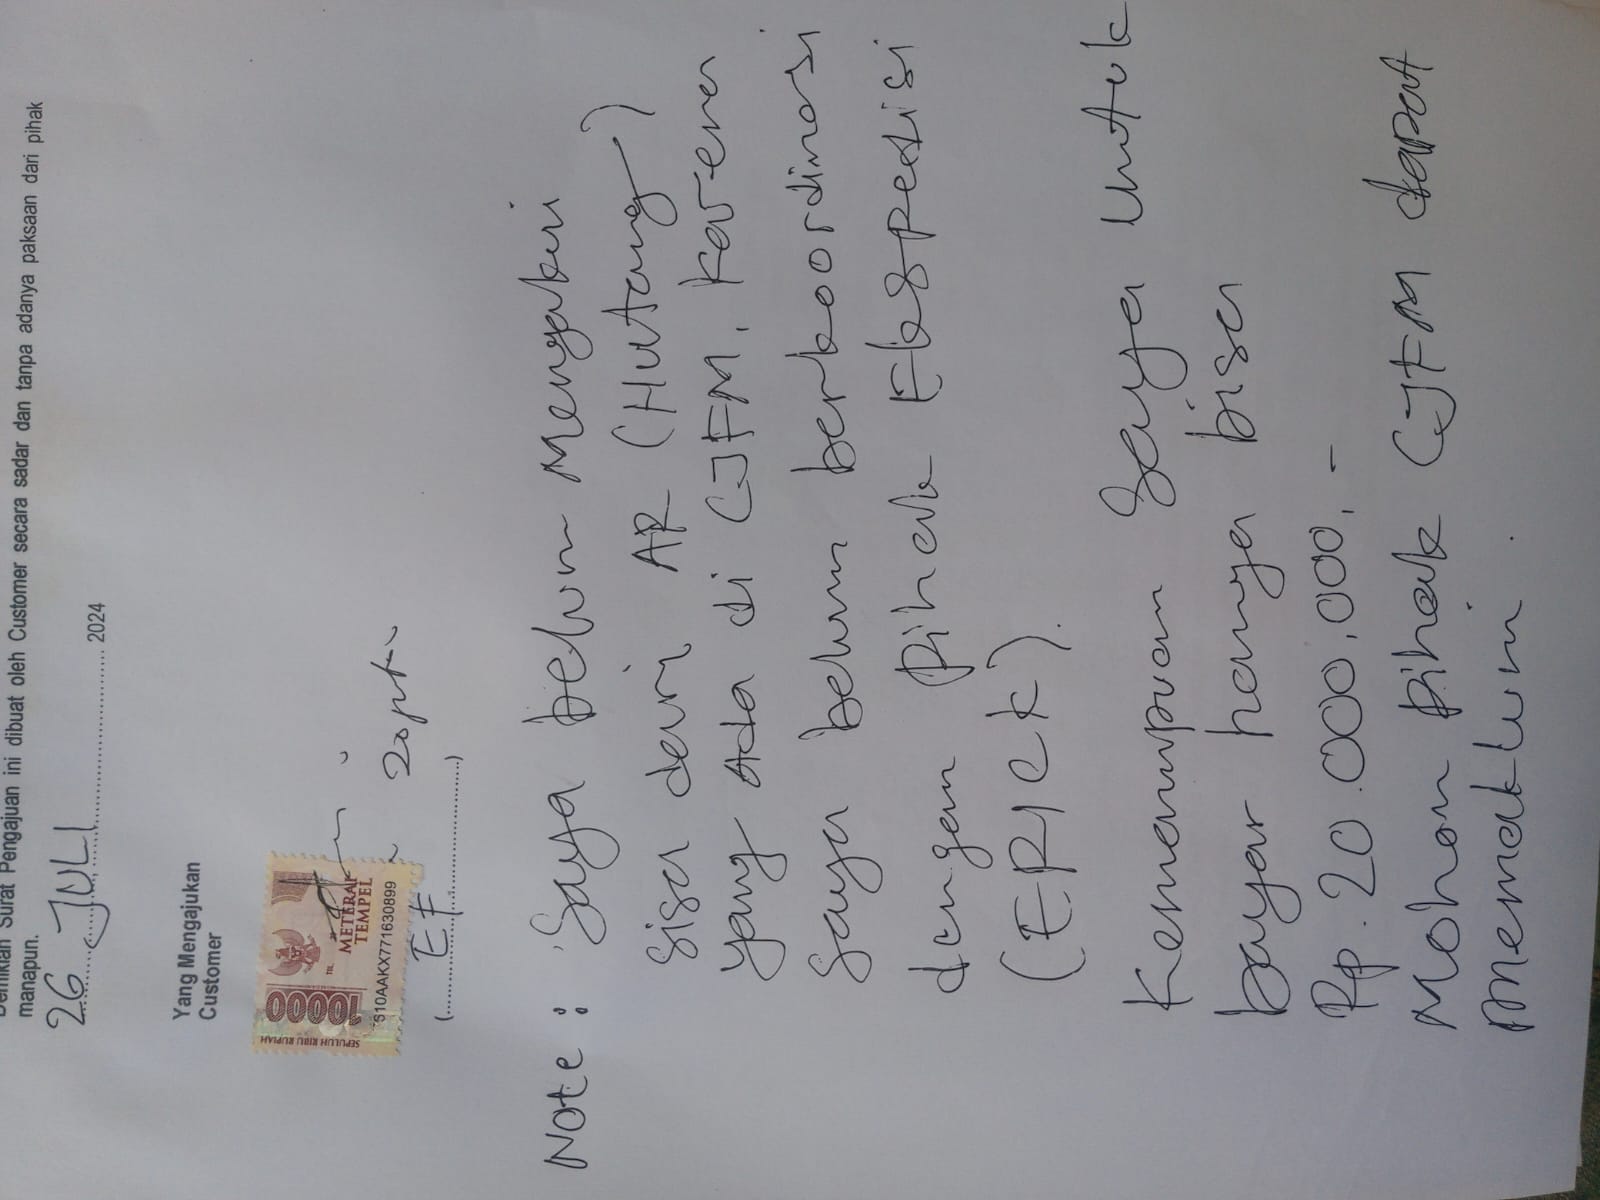 Demikian Surat Pengajuan ini dibuat oleh Customer secara sadar dan tanpa adanya paksaan dari pihak
manapun.
26 JULI 2024
Yang Mengajukan
Customer
SEPULUH RIBU RUPIAH
10000
TGL.
METERAI
TEMPEL
610AAKX771630899
EF
Note : Saya belum Mengakui
Sisa dari AR (Hutang)
Yang Ada di CJFM, karena
Saya belum berkoordinasi
dengan Pihak Ekspedisi
(ERICK).
Kemampuan Saya untuk
bayar hanya bisa
Rp. 20.000.000,-
Mohon Pihak CJFM dapat
Memaklumi.